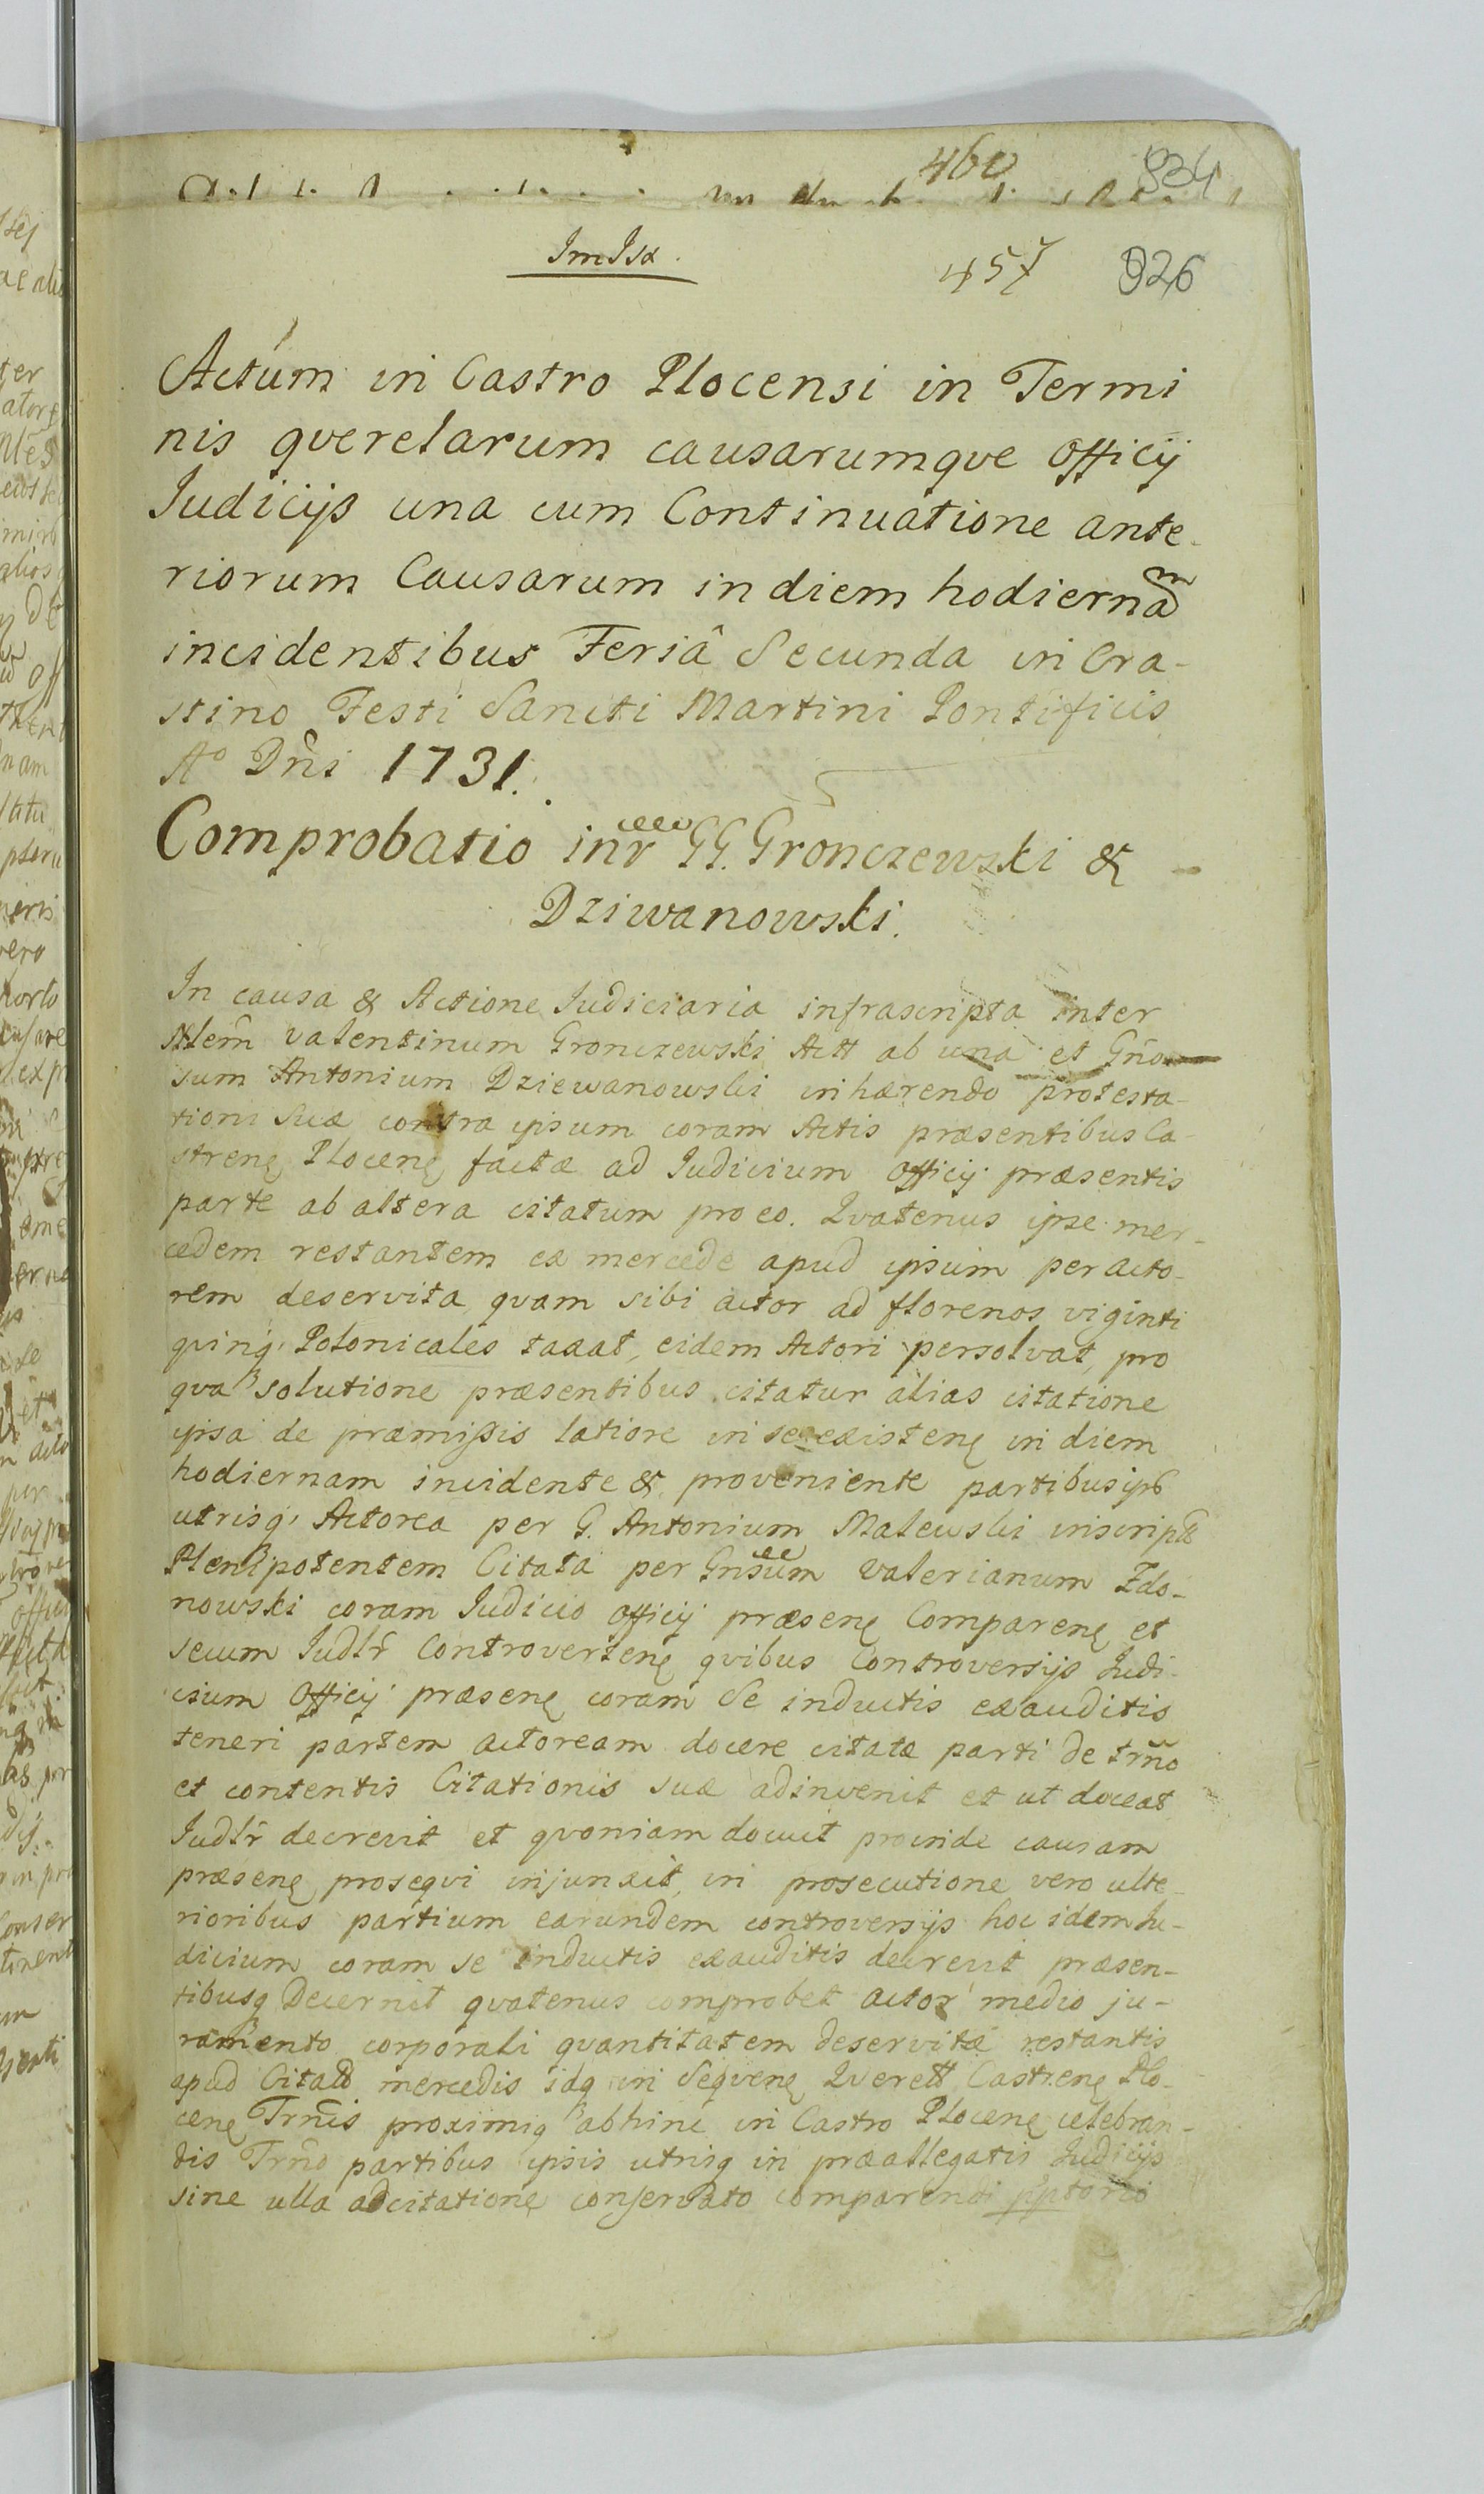 460 934
ImJsa.
457 926
Actum in Castro Plocensi in Termi
nis qverelarum causarumqve Officij
Judicijs una cum Continuatione ante-
riorum Causarum in diem hodiernam
incidentibus Feriâ Secunda in Cra-
stino Festi Sancti Martini Pontificis
Ao Dñi 1731.
Comprobatio inr GG. Gronczewski &
Dziwanowski.
In causa & Actione Judiciaria infrascripta inter
Valentinum Gronczewski Actt ab una et Gño-
sum Antonium Dziewanowski inhærendo protesta-
tioni suæ contra ipsum coram Actis præsentibus Ca-
strenę Plocenę factæ ad Judicium Officij præsentis
parte ab altera citatum pro eo. Qvatenus ipse mer-
cedem restantem ex mercede apud ipsum per acto-
rem deservita qvam sibi actor ad florenos viginti
qvinq, Polonicales taxat, eidem Actori persolvat, pro
qva solutione præsentibus citatur alias citatione
ipsa de præmissis latiore in se existenę in diem
hodiernam incidente & proveniente partibus ipß
utrisq, Actorea per G. Antonium Malewski inscriptß
Plenipotentem Citata per Gnsum Valerianum Zdo-
nowski coram Judicio Officij præsenę Comparenę et
secum Judlr Controvertenę qvibus Controversijs Judi-
cium Officij præsenę coram se inductis exauditis
teneri partem actoream docere citatæ parti de tm̃no
et contentis Citationis suæ adinvenit et ut doceat
Judlr decrevit et qvoniam docuit proinde causam
præsenę proseqvi injunxit, in prosecutione vero ulte-
rioribus partium earundem controversijs hoc idem Ju-
dicium coram se inductis exauditis decrevit præsen-
tibusq Decernit qvatenus comprobet actor medio ju-
ramento corporali qvantitatem deservitæ restantis
apud Citatß mercedis idq in Seqvenę Qverelß Castrenę Plo-
cenę Trm̃is proximię abhinc in Castro Plocenę celebran-
dis Trm̃o partibus ipsis utrisq in præallegatis Judicijs
sine ulla adcitationę conservato comparendi pptorio